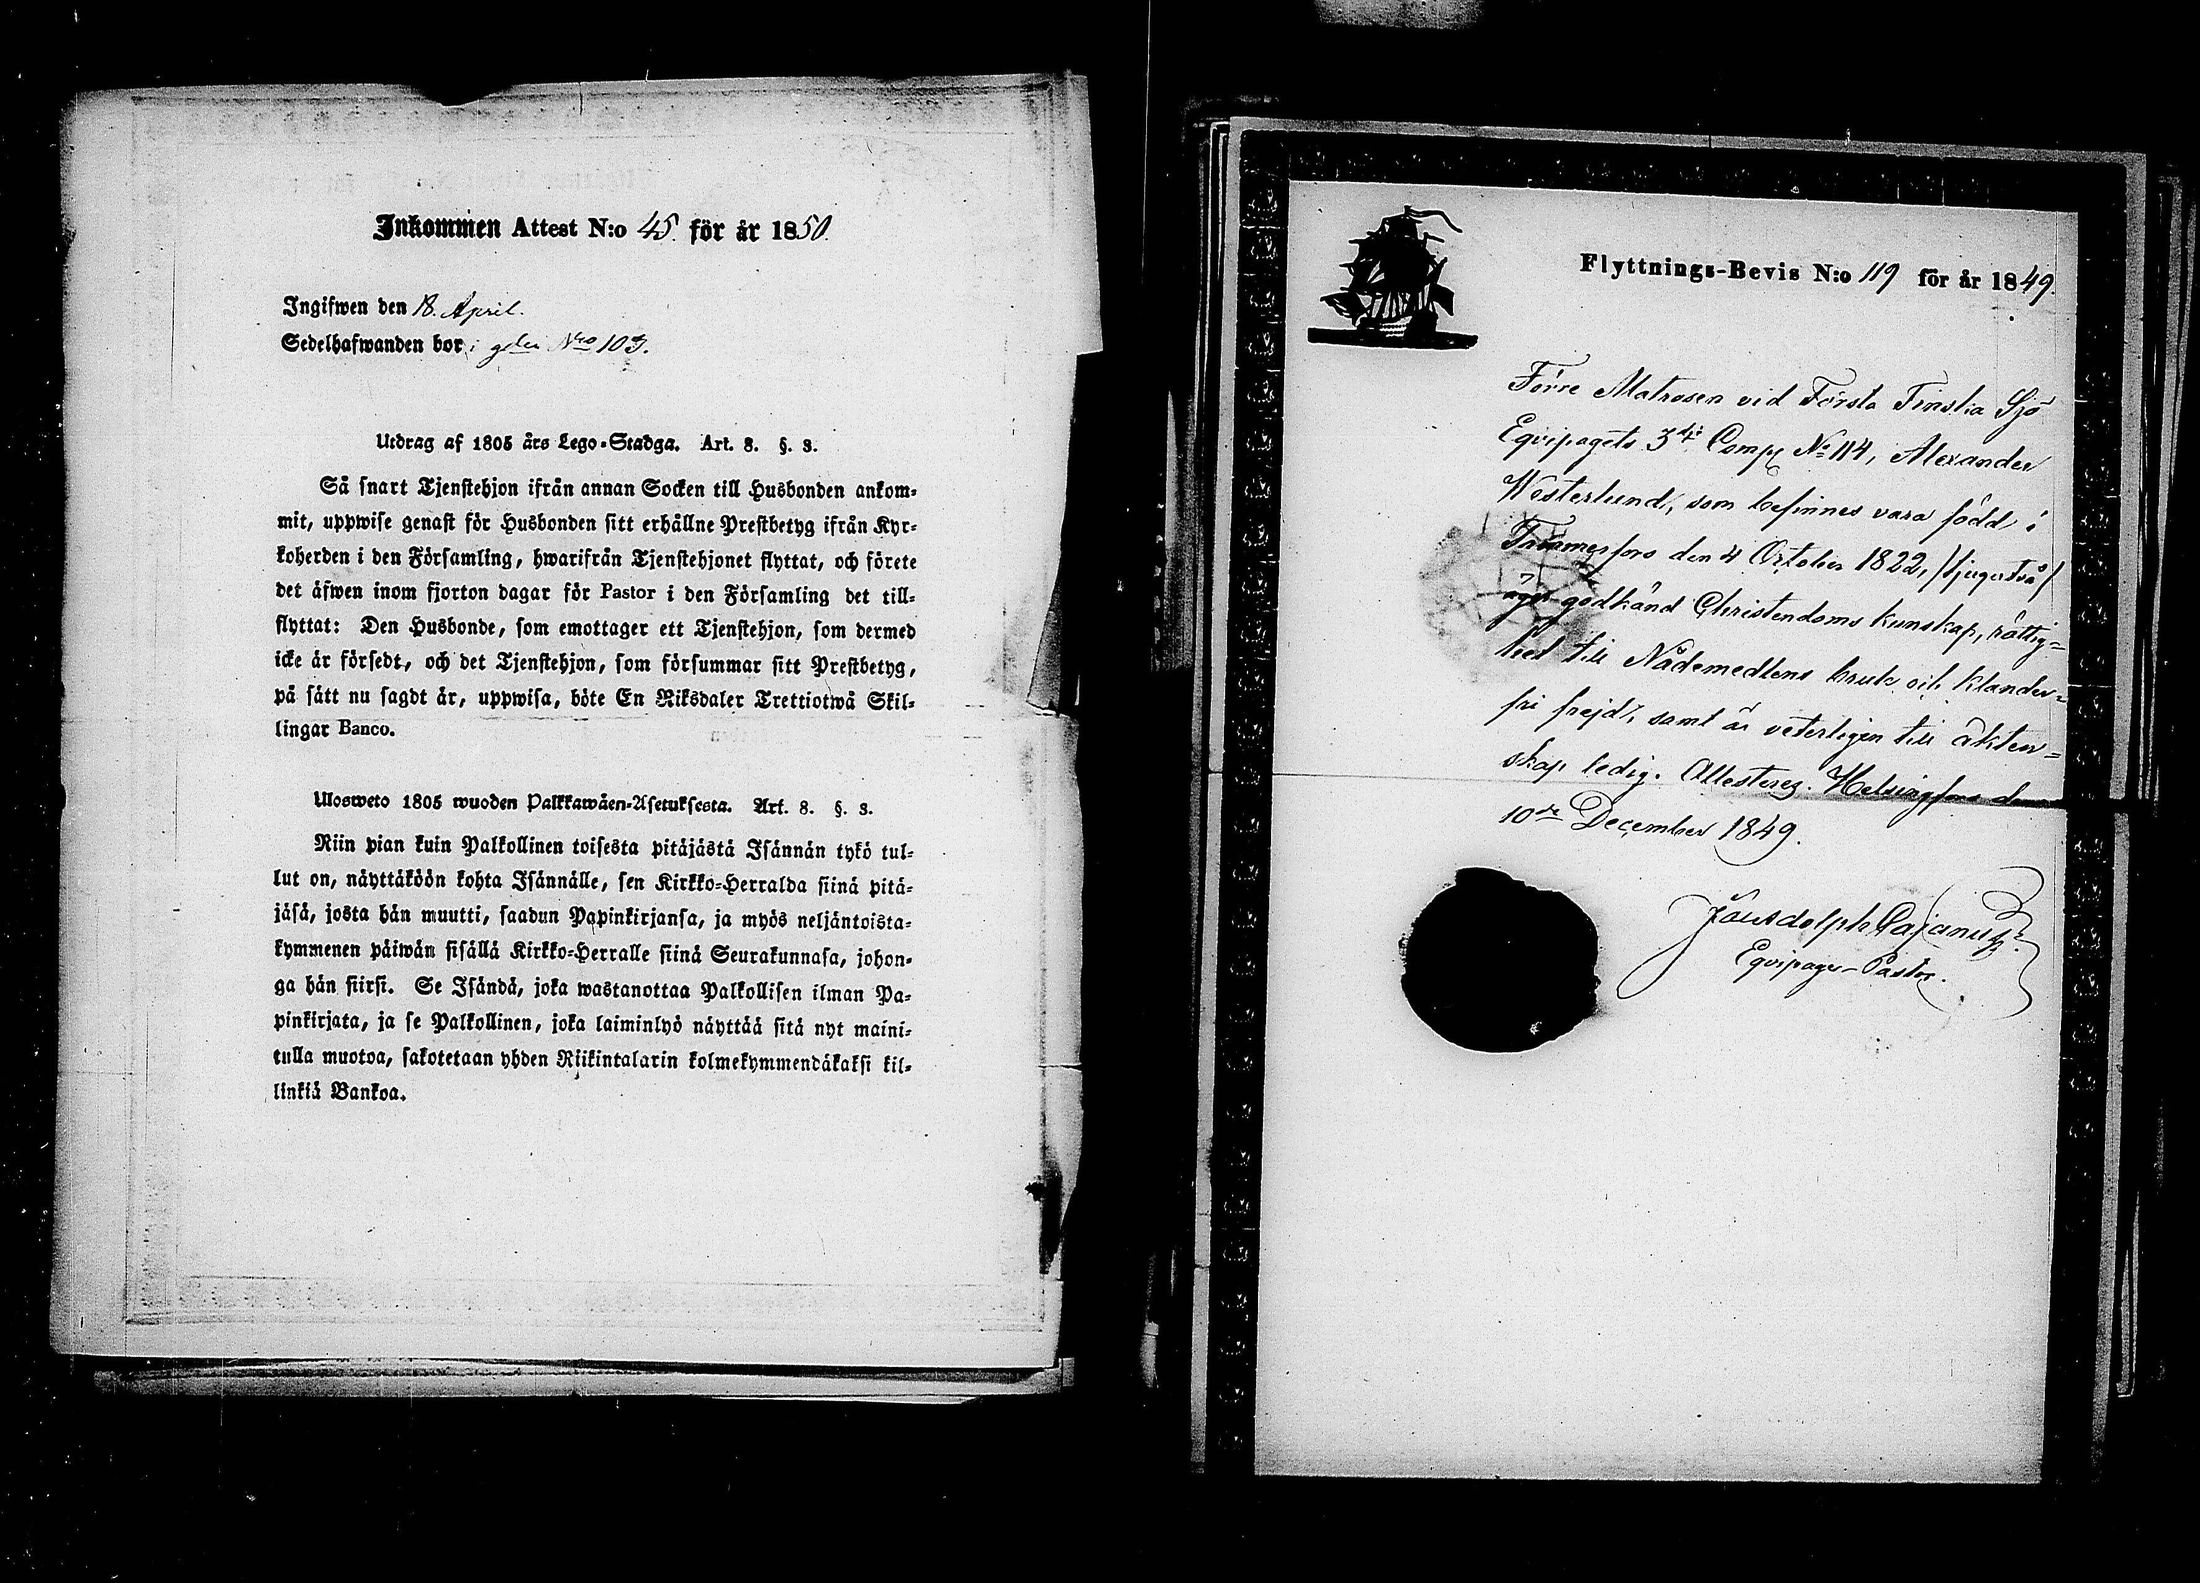 Inkommen Attest N:o 45. för år 1850.
Ingifwen den 18. April.
Sedelhafwanden bor i gden Nro 103.
Utdrag af 1805 års Lego-Stadga. Art. 8. §. 3.
Så snart Tjenstehjon ifrån annan Socken till Husbonden ankom-
mit, uppwise genast för Husbonden sitt erhållne Prestbetyg ifrån Kyr-
koherden i den Församling, hwarifrån Tjenstehjonet flyttat, och förete
det äfwen inom fjorton dagar för Pastor i den Församling det till-
flyttat: Den Husbonde, som emottager ett Tjenstehjon, som dermed
icke är försedt, och det Tjenstehjon, som försummar sitt Prestbetyg,
på sätt nu sagdt är, uppwisa, böte En Riksdaler Trettiotwå Skil-
lingar Banco.
Ulosweto 1805 wuoden Palkkawäen-Asetuksesta. Art. 8. §. 3.
Niin pian kuin Palkollinen toisesta pitäjästä Isännän tykö tul-
lut on, näyttäköön kohta Isännälle, sen Kirkko-Herralda siinä pitä-
jäsä, josta hän muutti, saadun Papinkirjansa, ja myös neljäntoista-
kymmenen päiwän sisällä Kirkko-Herralle siinä Seurakunnasa, johon-
ga hän siirsi. Se Isändä, joka wastanottaa Palkollisen ilman Pa-
pinkirjata, ja se Palkollinen, joka laiminlyö näyttää sitä nyt maini-
tulla muotoa, sakotetaan yhden Riikintalarin kolmekymmendäkaksi kil-
linkiä Bankoa.
Flyttnings-Bevis N:o 119 för år 1849.
Förre Matrosen vid Första Finska Sjö
Eqvipagets 3die Comp. No 114, Alexander
Westerlund, som befinnes vara född i
Tammerfors den 4 October 1822, /tjugutvå/
äger godkänd Christendoms kunskap, rättig=
het till Nådemedlens bruk och klander=
fri frejd, samt är veterligen till äkten=
skap ledig. Attesteras. Helsingfors den
10de December 1849.
Cajanus.
Eqvipages-Pastor.